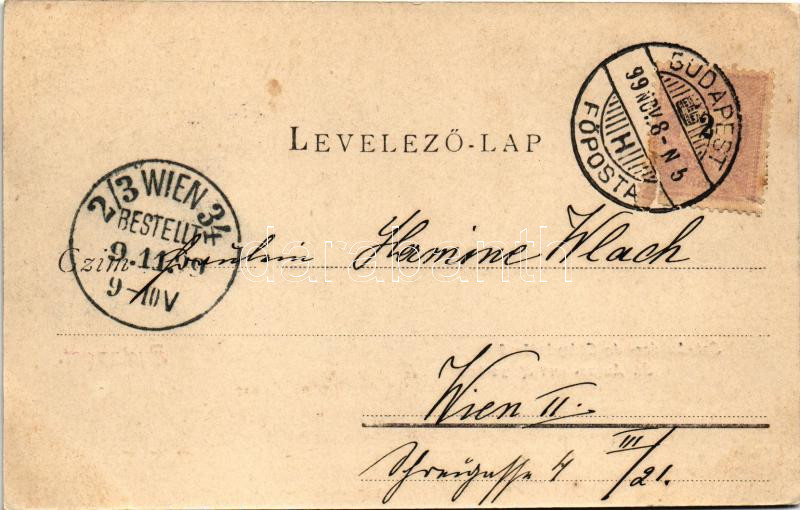 BUDAPEST
2
99 NOV. 8-N 5
H
FŐPOSTA
LEVELEZŐ-LAP
2/3 WIEN 34
BESTELLT
9.11.99
9-10V
Czim: Fräulein Hermine Wlach
darabanth
Wien II.
4 III/21.